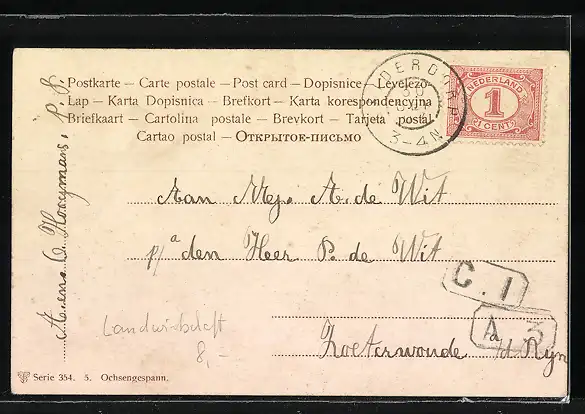 Postkarte – Carte postale – Post card – Dopisnice – Levelező
Lap – Karta Dopisnica – Brefkort – Karta korespondencyjna
Briefkaart – Cartolina postale – Brevkort – Tarjeta postal
Cartao postal – Открытое-письмо
NEDERLAND
1
1 CENT
3-4N
Aan Mej. A. de Wit
p/a den Heer P. de Wit
C. 1
A 3
Zoeterwoude a/d Rijn
Landwirtschaft
8,-
Serie 354. 5. Ochsengespann.
Hooymans, P. S.